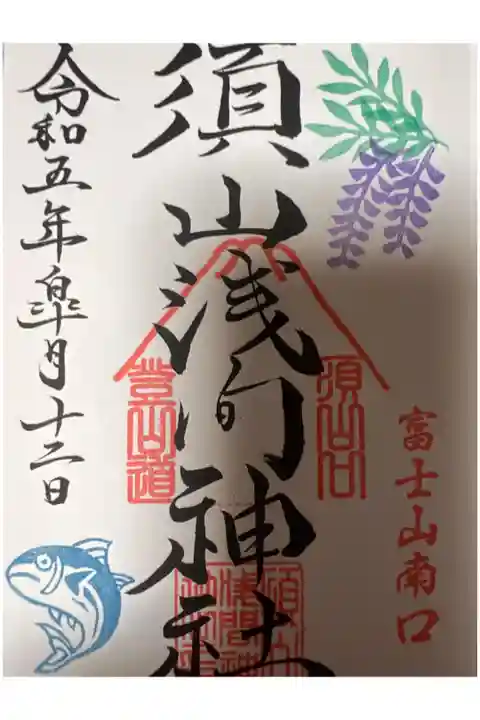 富士山南口
須山浅間神社
須山口
登山道
須山浅間神社
令和五年皐月十二日